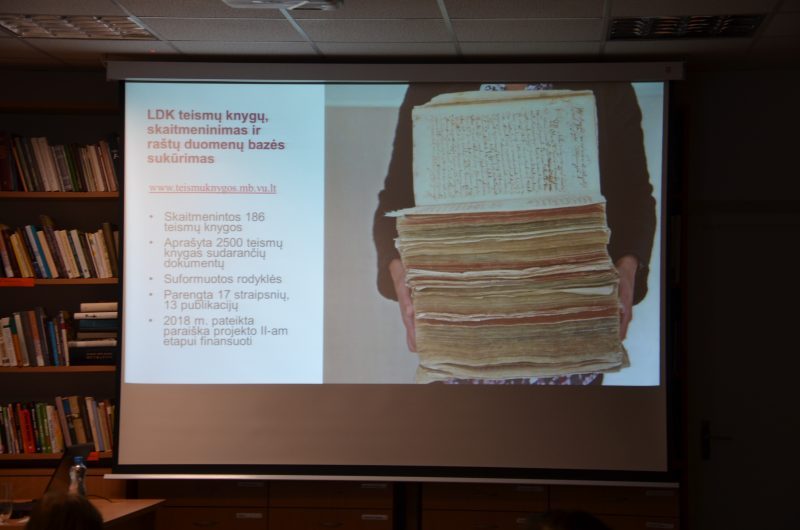 LDK teismų knygų,
skaitmeninimas ir
raštų duomenų bazės
sukūrimas
www.teismuknygos.mb.vu.lt
• Skaitmenintos 186
teismų knygos
• Aprašyta 2500 teismų
knygas sudarančių
dokumentų
• Suformuotos rodyklės
• Parengta 17 straipsnių,
13 publikacijų
• 2018 m. pateikta
paraiška projekto II-am
etapui finansuoti